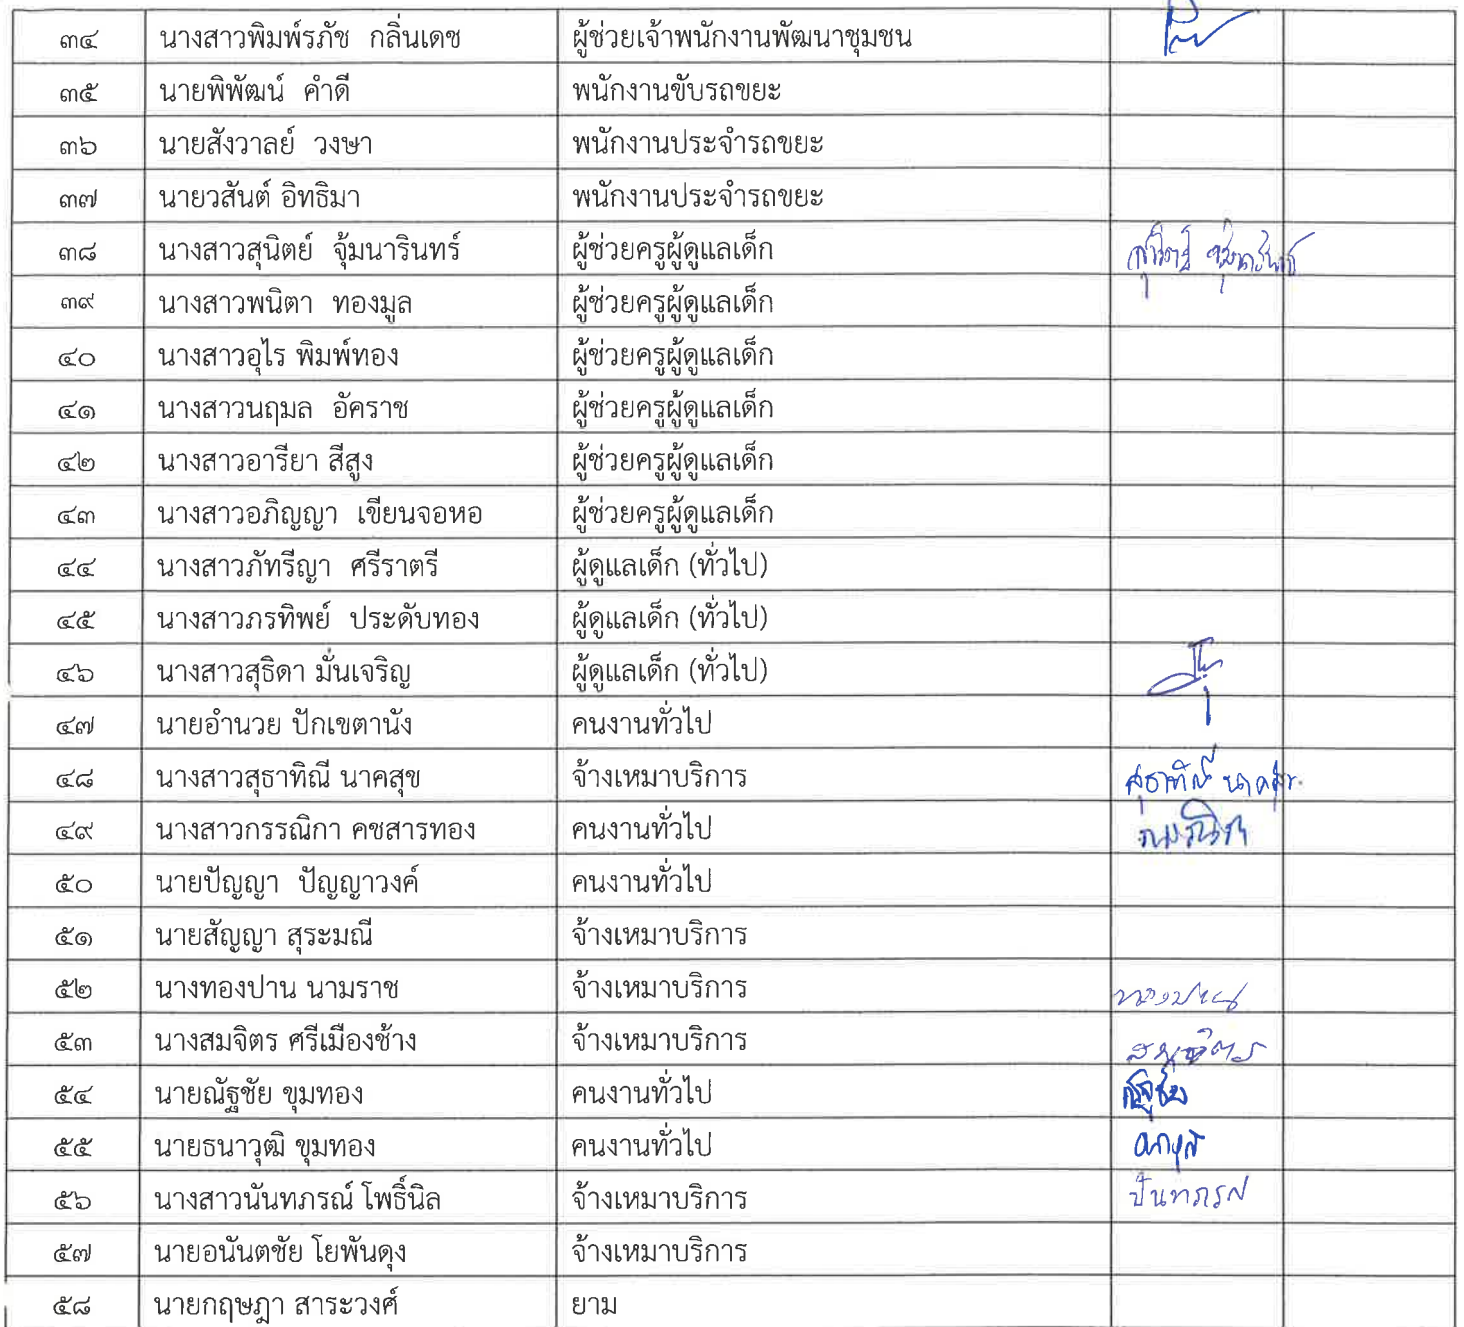 ๓๔ นางสาวพิมพ์รภัช กลิ่นเดช ผู้ช่วยเจ้าพนักงานพัฒนาชุมชน
๓๕ นายพิพัฒน์ คำดี พนักงานขับรถขยะ
๓๖ นายสังวาลย์ วงษา พนักงานประจำรถขยะ
๓๗ นายวสันต์ อิทธิมา พนักงานประจำรถขยะ
๓๘ นางสาวสุนิตย์ จุ้มนารินทร์ ผู้ช่วยครูผู้ดูแลเด็ก
๓๙ นางสาวพนิตา ทองมูล ผู้ช่วยครูผู้ดูแลเด็ก
๔๐ นางสาวอุไร พิมพ์ทอง ผู้ช่วยครูผู้ดูแลเด็ก
๔๑ นางสาวนฤมล อัคราช ผู้ช่วยครูผู้ดูแลเด็ก
๔๒ นางสาวอารียา สีสูง ผู้ช่วยครูผู้ดูแลเด็ก
๔๓ นางสาวอภิญญา เขียนจอหอ ผู้ช่วยครูผู้ดูแลเด็ก
๔๔ นางสาวภัทรีญา ศรีราตรี ผู้ดูแลเด็ก (ทั่วไป)
๔๕ นางสาวภรทิพย์ ประดับทอง ผู้ดูแลเด็ก (ทั่วไป)
๔๖ นางสาวสุธิดา มั่นเจริญ ผู้ดูแลเด็ก (ทั่วไป)
๔๗ นายอำนวย ปักเขตานัง คนงานทั่วไป
๔๘ นางสาวสุธาทิณี นาคสุข จ้างเหมาบริการ สุธาทิณี นาคสุข
๔๙ นางสาวกรรณิกา คชสารทอง คนงานทั่วไป
๕๐ นายปัญญา ปัญญาวงค์ คนงานทั่วไป
๕๑ นายสัญญา สุระมณี จ้างเหมาบริการ
๕๒ นางทองปาน นามราช จ้างเหมาบริการ ทองปาน
๕๓ นางสมจิตร ศรีเมืองช้าง จ้างเหมาบริการ สมจิตร
๕๔ นายณัฐชัย ขุมทอง คนงานทั่วไป ณัฐชัย
๕๕ นายธนาวุฒิ ขุมทอง คนงานทั่วไป
๕๖ นางสาวนันทภรณ์ โพธิ์นิล จ้างเหมาบริการ นันทภรณ์
๕๗ นายอนันตชัย โยพันดุง จ้างเหมาบริการ
๕๘ นายกฤษฎา สาระวงศ์ ยาม